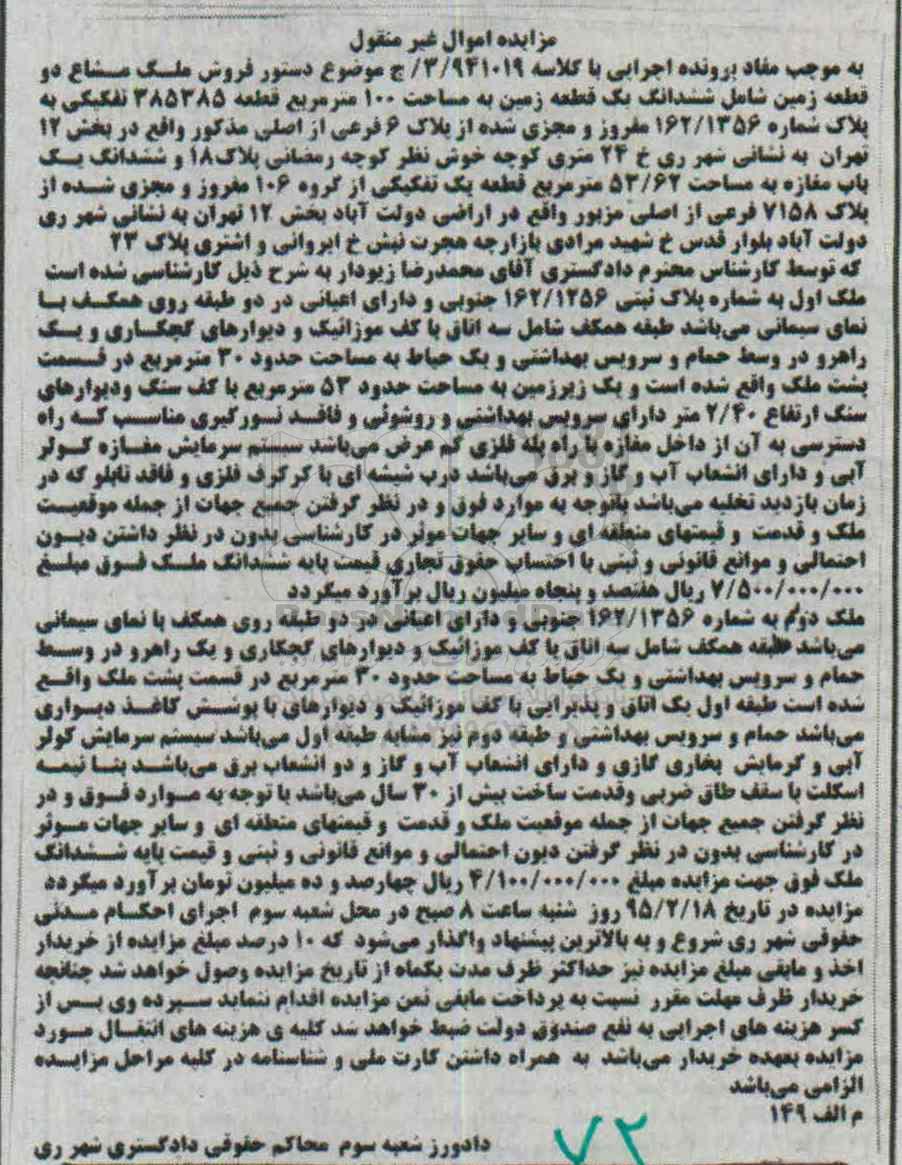 مزایده اموال غیر منقول
به موجب مفاد پرونده اجرایی با کلاسه ۳/۹۴۱۰۱۹/ ج موضوع دستور فروش ملک مشاع دو
قطعه زمین شامل ششدانگ یک قطعه زمین به مساحت ۱۰۰ مترمربع قطعه ۳۸۵۳۸۵ تفکیکی به
پلاک شماره ۱۶۲/۱۳۵۶ مفروز و مجزی شده از پلاک ۶ فرعی از اصلی مذکور واقع در بخش ۱۲
تهران به نشانی شهر ری خ ۲۴ متری کوچه خوش نظر کوچه رمضانی پلاک۱۸ و ششدانگ یک
باب مغازه به مساحت ۵۳/۶۲ مترمربع قطعه یک تفکیکی از گروه ۱۰۶ مفروز و مجزی شده از
پلاک ۷۱۵۸ فرعی از اصلی مزبور واقع در اراضی دولت آباد بخش ۱۲ تهران به نشانی شهر ری
دولت آباد بلوار قدس خ شهید مرادی بازارچه هجرت نبش خ ایروانی و اشتری پلاک ۲۳
که توسط کارشناس محترم دادگستری آقای محمدرضا زیودار به شرح ذیل کارشناسی شده است
ملک اول به شماره پلاک ثبتی ۱۶۲/۱۲۵۶ جنوبی و دارای اعیانی در دو طبقه روی همکف با
نمای سیمانی می‌باشد طبقه همکف شامل سه اتاق با کف موزائیک و دیوارهای گچکاری و یک
راهرو در وسط حمام و سرویس بهداشتی و یک حیاط به مساحت حدود ۳۰ مترمربع در قسمت
پشت ملک واقع شده است و یک زیرزمین به مساحت حدود ۵۳ مترمربع با کف سنگ ودیوارهای
سنگ ارتفاع ۲/۴۰ متر دارای سرویس بهداشتی و روشوئی و فاقد نورگیری مناسب که راه
دسترسی به آن از داخل مغازه با راه پله فلزی کم عرض می‌باشد سیستم سرمایش مغازه کولر
آبی و دارای انشعاب آب و گاز و برق می‌باشد درب شیشه ای با کرکرف فلزی و فاقد تابلو که در
زمان بازدید تخلیه می‌باشد باتوجه به موارد فوق و در نظر گرفتن جمیع جهات از جمله موقعیت
ملک و قدمت و قیمتهای منطقه ای و سایر جهات موثر در کارشناسی بدون در نظر داشتن دیون
احتمالی و موانع قانونی و ثبتی با احتساب حقوق تجاری قیمت پایه ششدانگ ملک فوق مبلغ
۷/۵۰۰/۰۰۰/۰۰۰ ریال هفتصد و پنجاه میلیون ریال برآورد میگردد
ملک دوم به شماره ۱۶۲/۱۳۵۶ جنوبی و دارای اعیانی در دو طبقه روی همکف با نمای سیمانی
می‌باشد طبقه همکف شامل سه اتاق با کف موزائیک و دیوارهای گچکاری و یک راهرو در وسط
حمام و سرویس بهداشتی و یک حیاط به مساحت حدود ۳۰ مترمربع در قسمت پشت ملک واقع
شده است طبقه اول یک اتاق و پذیرایی با کف موزائیک و دیوارهای با پوشش کاغذ دیواری
می‌باشد حمام و سرویس بهداشتی و طبقه دوم نیز مشابه طبقه اول می‌باشد سیستم سرمایش کولر
آبی و گرمایش بخاری گازی و دارای انشعاب آب و گاز و دو انشعاب برق می‌باشد بنا نیمه
اسکلت با سقف طاق ضربی وقدمت ساخت بیش از ۳۰ سال می‌باشد با توجه به موارد فوق و در
نظر گرفتن جمیع جهات از جمله موقعیت ملک و قدمت و قیمتهای منطقه ای و سایر جهات موثر
در کارشناسی بدون در نظر گرفتن دیون احتمالی و موانع قانونی و ثبتی و قیمت پایه ششدانگ
ملک فوق جهت مزایده مبلغ ۴/۱۰۰/۰۰۰/۰۰۰ ریال چهارصد و ده میلیون تومان برآورد میگردد
مزایده در تاریخ ۹۵/۲/۱۸ روز شنبه ساعت ۸ صبح در محل شعبه سوم اجرای احکام مدنی
حقوقی شهر ری شروع و به بالاترین پیشنهاد واگذار می‌شود که ۱۰ درصد مبلغ مزایده از خریدار
اخذ و مابقی مبلغ مزایده نیز حداکثر ظرف مدت یکماه از تاریخ مزایده وصول خواهد شد چنانچه
خریدار ظرف مهلت مقرر نسبت به پرداخت مابقی ثمن مزایده اقدام ننماید سپرده وی پس از
کسر هزینه های اجرایی به نفع صندوق دولت ضبط خواهد شد کلیه ی هزینه های انتقال مورد
مزایده بعهده خریدار می‌باشد به همراه داشتن کارت ملی و شناسنامه در کلیه مراحل مزایده
الزامی می‌باشد
م الف ۱۴۹
دادورز شعبه سوم محاکم حقوقی دادگستری شهر ری
۷۲